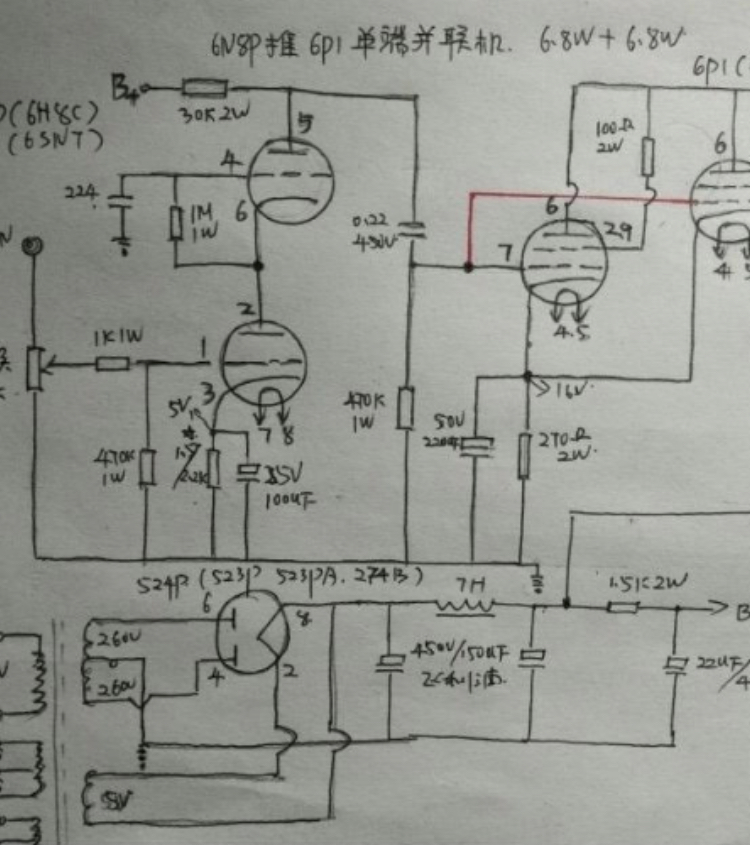 6N8P推 6P1 单端并联机. 6.8W + 6.8W
6P1(
B4
30K 2W
(6H8C)
(6SNT)
5
4
6
224
1M
1W
0.22
450V
100Ω
2W
6
6
29
7
4.5
4
2
1K1W
1
3
5V
7 8
470K
1W
2.2K
35V
100uF
470K
1W
50V
220uF
16V
270Ω
2W
5Z4P (5Z3P 5Z3PA. 274B)
7H
1.5K 2W
B
6
8
260V
260V
4
2
450V/150uF
22uF/
4
5V